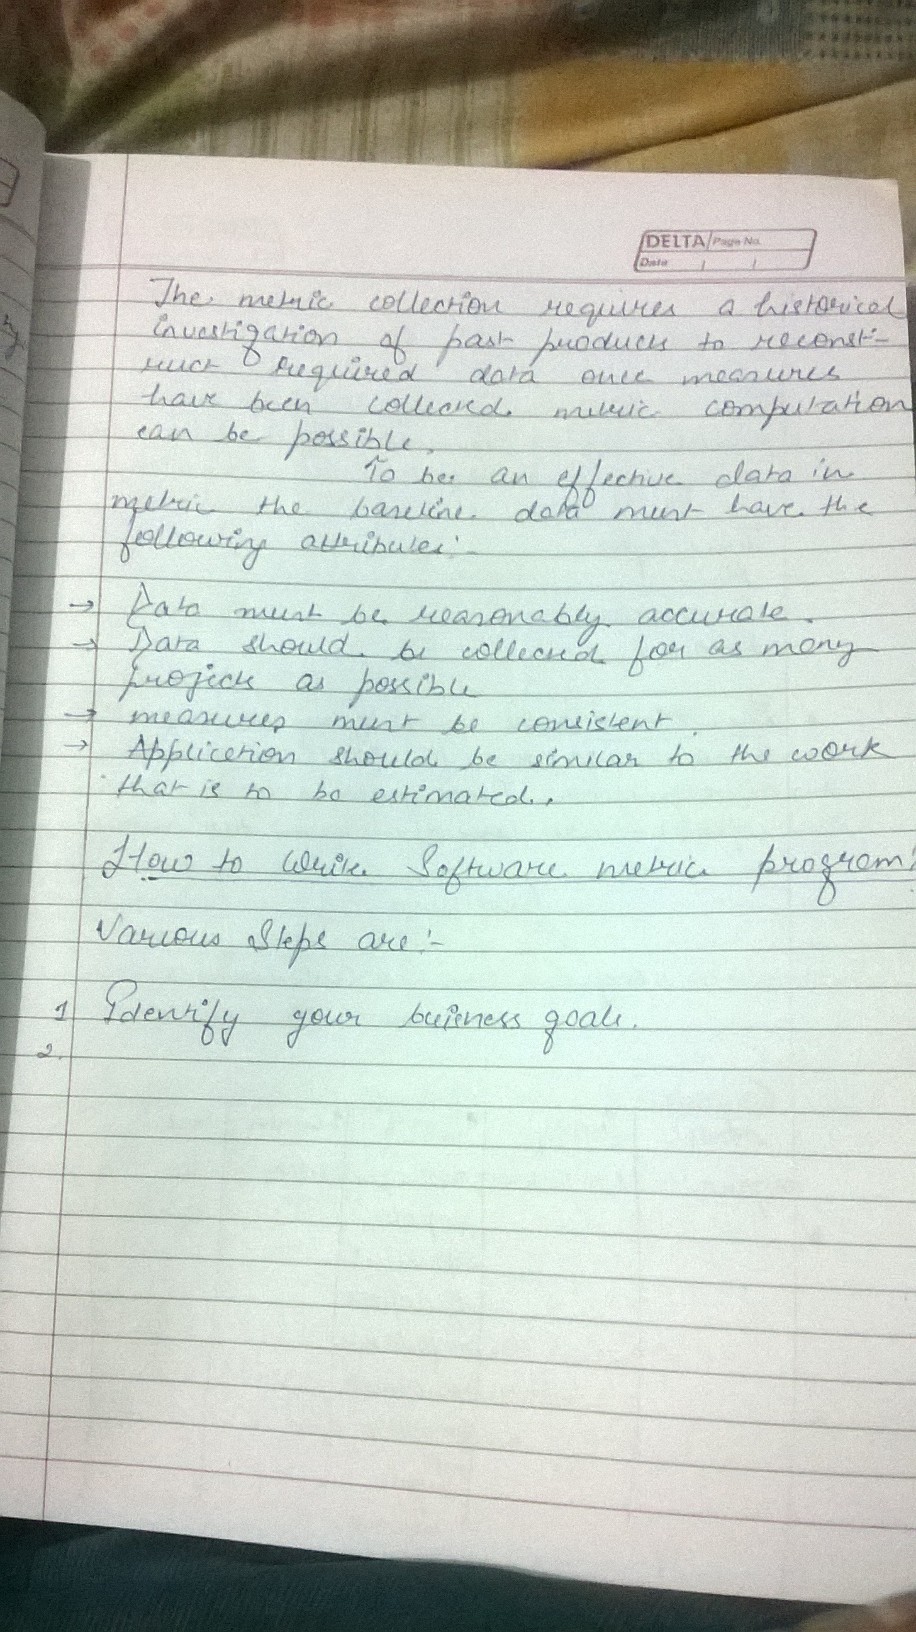 DELTA Page No.
Date / /
The metric collection requires a historical
investigation of past products to reconst-
ruct required data once measures
have been collected. metric computation
can be possible.
To be an effective data in
metric the baseline data must have the
following attributes:-
→ Data must be reasonably accurate.
→ Data should be collected for as many
projects as possible
→ measures must be consistent.
→ Application should be similar to the work
that is to be estimated.
How to Write Software metric program:
Various Steps are:-
1 Identify your business goals.
2.